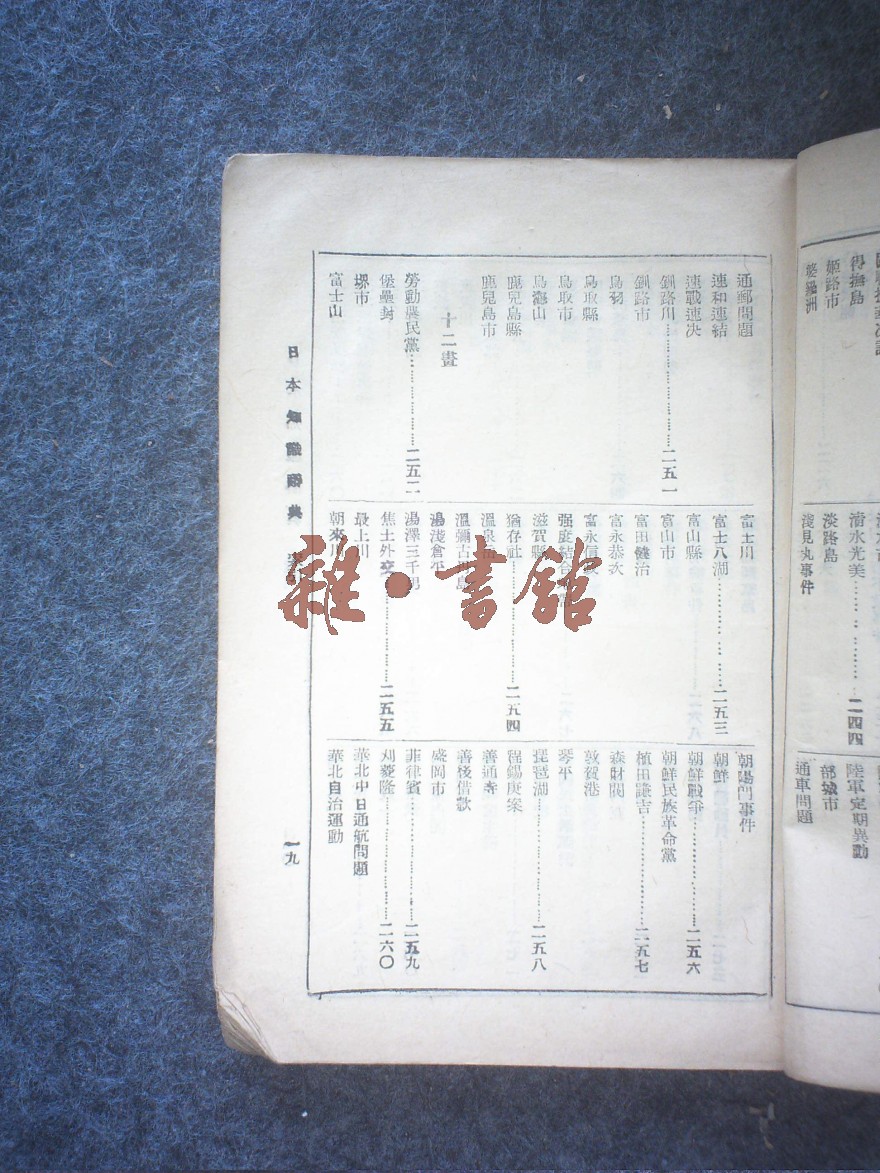 得撫島
姬路市
婆羅洲
清水光美……………二四四
淡路島
淺見丸事件
陸軍定期異動
部城市
通車問題
通郵問題
連和連結
速戰速决
釧路川……………二五一
釧路市
鳥羽
鳥取縣
鳥取市
鳥海山
鹿兒島縣
鹿兒島市
十二畫
勞動農民黨……………二五二
堡壘封
堺市
富士山
富士川
富士八湖……………二五三
富山縣
富山市
富田健治
富永恭次
富永信
强度結合
滋賀縣
猶存社……………二五四
溫泉岳
溫彌古
湯淺倉平
湯澤三千男
焦土外交……………二五五
最上川
朝來
朝陽門事件
朝鮮
朝鮮戰爭……………二五六
朝鮮民族革命黨
植田謙吉……………二五七
森財閥
敦賀港
琴平
琵琶湖……………二五八
程錫庚案
善通寺
善後借款
盛岡市
菲律賓……………二五九
刈菱隆……………二六〇
華北中日通航問題
華北自治運動
日本
典
一九
雜·書館